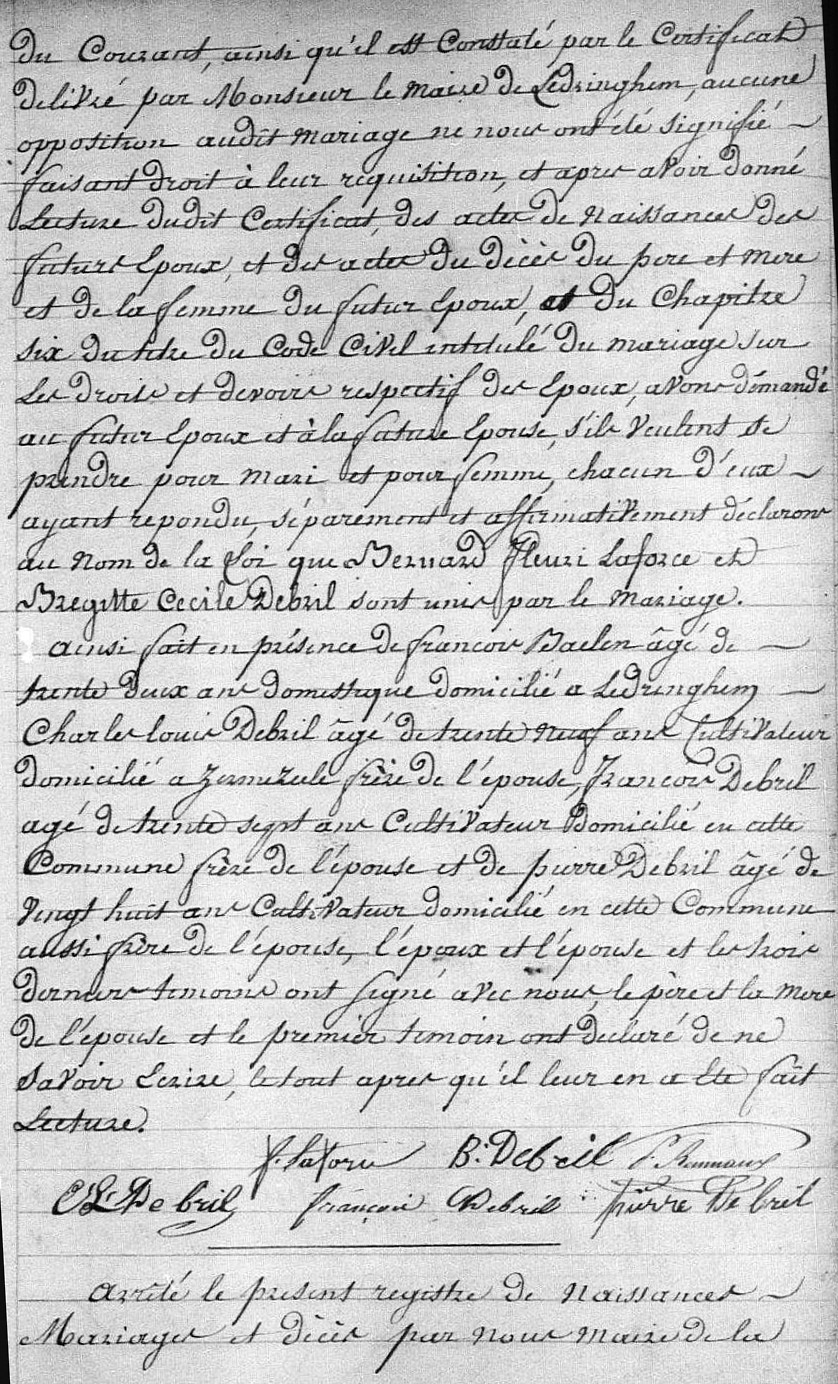 du Courant, ainsi qu'il est Constaté par le Certificat
delivré par Monsieur le maire de Ledringhem, aucune
opposition audit mariage ne nous ont été signifié
faisant droit à leur requisition, et apres avoir donné
Lecture dudit Certificat, des actes de Naissances des
futurs Epoux, et des actes du décès du pere et mere
et de la femme du futur Epoux, et du Chapitre
six du titre du Code Civel intitulé du mariage sur
Les droits et devoirs respectif des Epoux, avons démandé
au futur Epoux et à la future Epouse, s'ils veulent se
prendre pour mari et pour femme, chacun d'eux
ayant repondu, séparement et affirmativement déclarons
au Nom de la Loi que Bernard fleuri Laforce et
Bregitte Cecile Debril sont unis par le mariage.
ainsi fait en présence de francois Baelen âgé de
trente deux ans domestique domicilié a Ledringhem
Charles louis Debril âgé de trente neuf ans Cultivateur
domicilié a Zermezeele frère de l'épouse, François Debril
agé de trente sept ans Cultivateur Domicilié en cette
Commune frère de l'épouse et de pierre Debril âgé de
vingt huit ans Cultivateur domicilié en cette Commune
aussi frère de l'épouse, l'époux et l'épouse et les trois
derniers temoins ont signé avec nous, le père et la mere
de l'épouse et le premier temoin ont declaré de ne
savoir Ecrire, le tout apres qu'il leur en a Eté fait
Lecture.
B: Debril
C L Debril françois Debril pierre Debril
arrêté le present registre de Naissances
Mariages et décès par nous maire de la